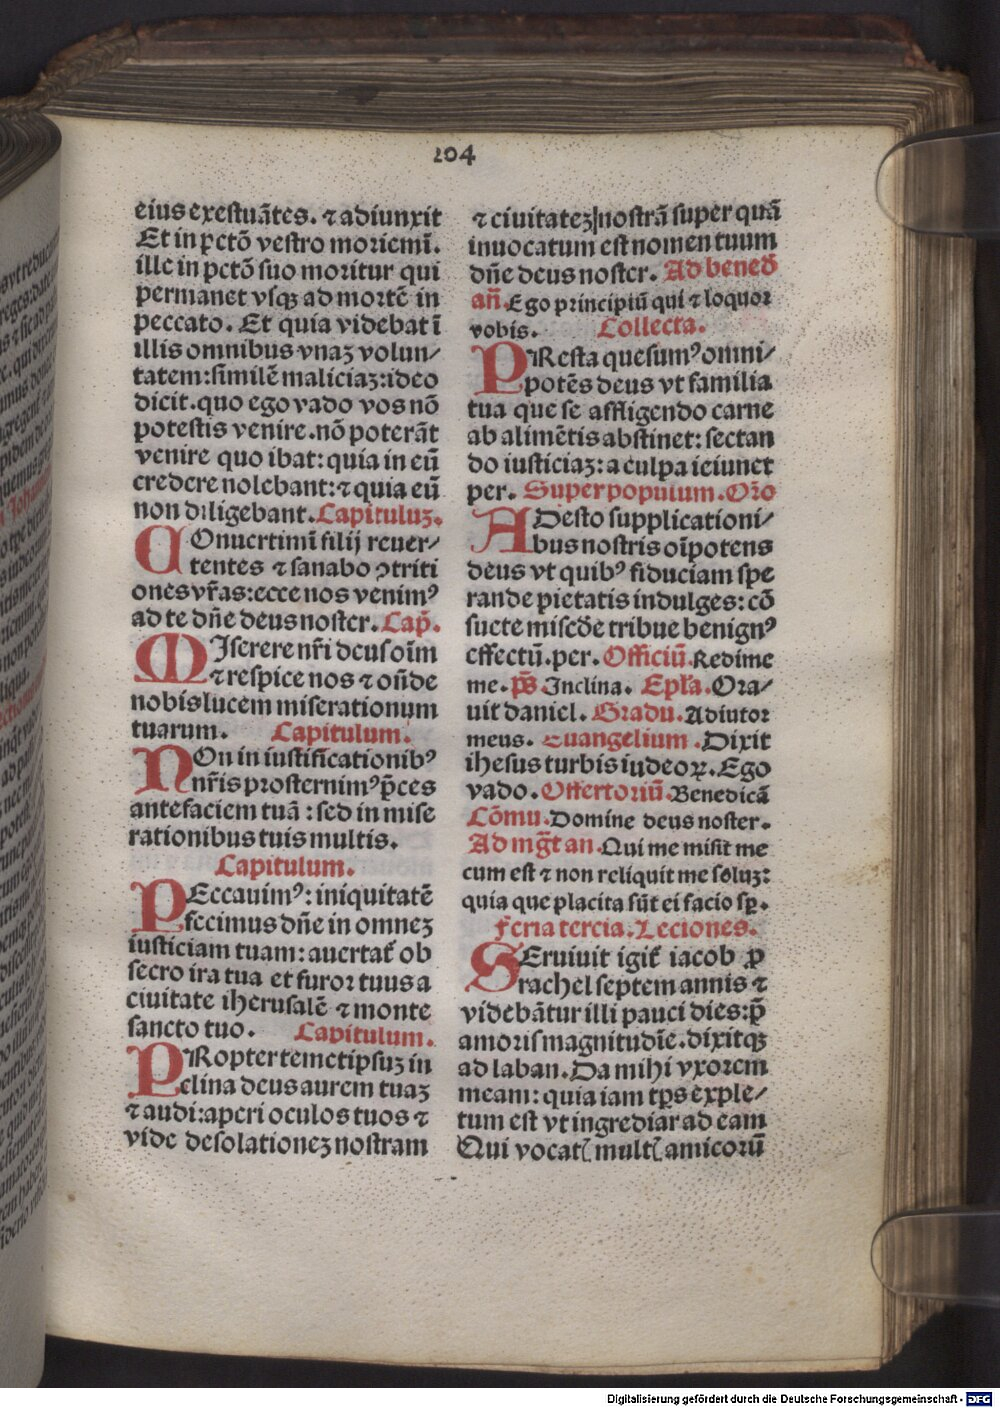 104
eius exestuãtes. ⁊ adiunxit
Et in pctõ vestro moriemĩ.
ille in pctõ suo moritur qui
permanet vsqꝫ ad mortẽ in
peccato. Et quia videbat ĩ
illis omnibus vnaꝫ volun/
tatem: similẽ maliciaꝫ: ideo
dicit. quo ego vado vos nõ
potestis venire. nõ poterãt
venire quo ibat: quia in eũ
credere nolebant: ⁊ quia eũ
non diligebant. Capituluꝫ.
COnuertimĩ filij reuer/
tentes ⁊ sanabo ꝯtriti
ones vr̃as: ecce nos venimꝰ
ad te dñe deus noster. Cap̃.
MIserere nr̃i deus oĩm
⁊ respice nos ⁊ oñde
nobis lucem miserationum
tuarum. Capitulum.
NOn in iustificationibꝰ
nr̃is prosternimꝰ p̃ces
ante faciem tuã: sed in mise
rationibus tuis multis.
Capitulum.
PEccauimꝰ: iniquitatẽ
fecimus dñe in omneꝫ
iusticiam tuam: auertat̃ ob
secro ira tua et furor tuus a
ciuitate iherusalẽ ⁊ monte
sancto tuo. Capitulum.
PRopter temetipsuꝫ in
clina deus aurem tuaꝫ
⁊ audi: aperi oculos tuos ⁊
vide desolationeꝫ nostram
⁊ ciuitateꝫ nostrã super quã
inuocatum est nomen tuum
dñe deus noster. Ad bened̃
añ. Ego principiũ qui ⁊ loquor
vobis. Collecta.
PResta quesumꝰ omni/
potẽs deus vt familia
tua que se affligendo carne
ab alimẽtis abstinet: sectan
do iusticiaꝫ: a culpa ieiunet
per. Super populum. Or̃o
ADesto supplicationi/
bus nostris oĩpotens
deus vt quibꝰ fiduciam spe
rande pietatis indulges: cõ
suete miscd̃e tribue benignꝰ
effectũ. per. Officiũ. Redime
me. p̃s Inclina. Epl̃a. Ora/
uit daniel. Gradu. Adiutor
meus. Euangelium. Dixit
ihesus turbis iudeoꝝ. Ego
vado. Offertoriũ. Benedicã
Cõmu. Domine deus noster.
Ad mg̃t an. Qui me misit me
cum est ⁊ non reliquit me soluꝫ:
quia que placita sũt ei facio sp̃.
Feria tercia. Lectiones.
SEruiuit igit̃ iacob ꝓ
rachel septem annis ⁊
videbãtur illi pauci dies: p̃
amoris magnitudĩe. dixitqꝫ
ad laban. Da mihi vxorem
meam: quia iam tp̃s exple/
tum est vt ingrediar ad eam
Qui vocatꝭ multꝭ amicorũ
Digitalisierung gefördert durch die Deutsche Forschungsgemeinschaft - DFG